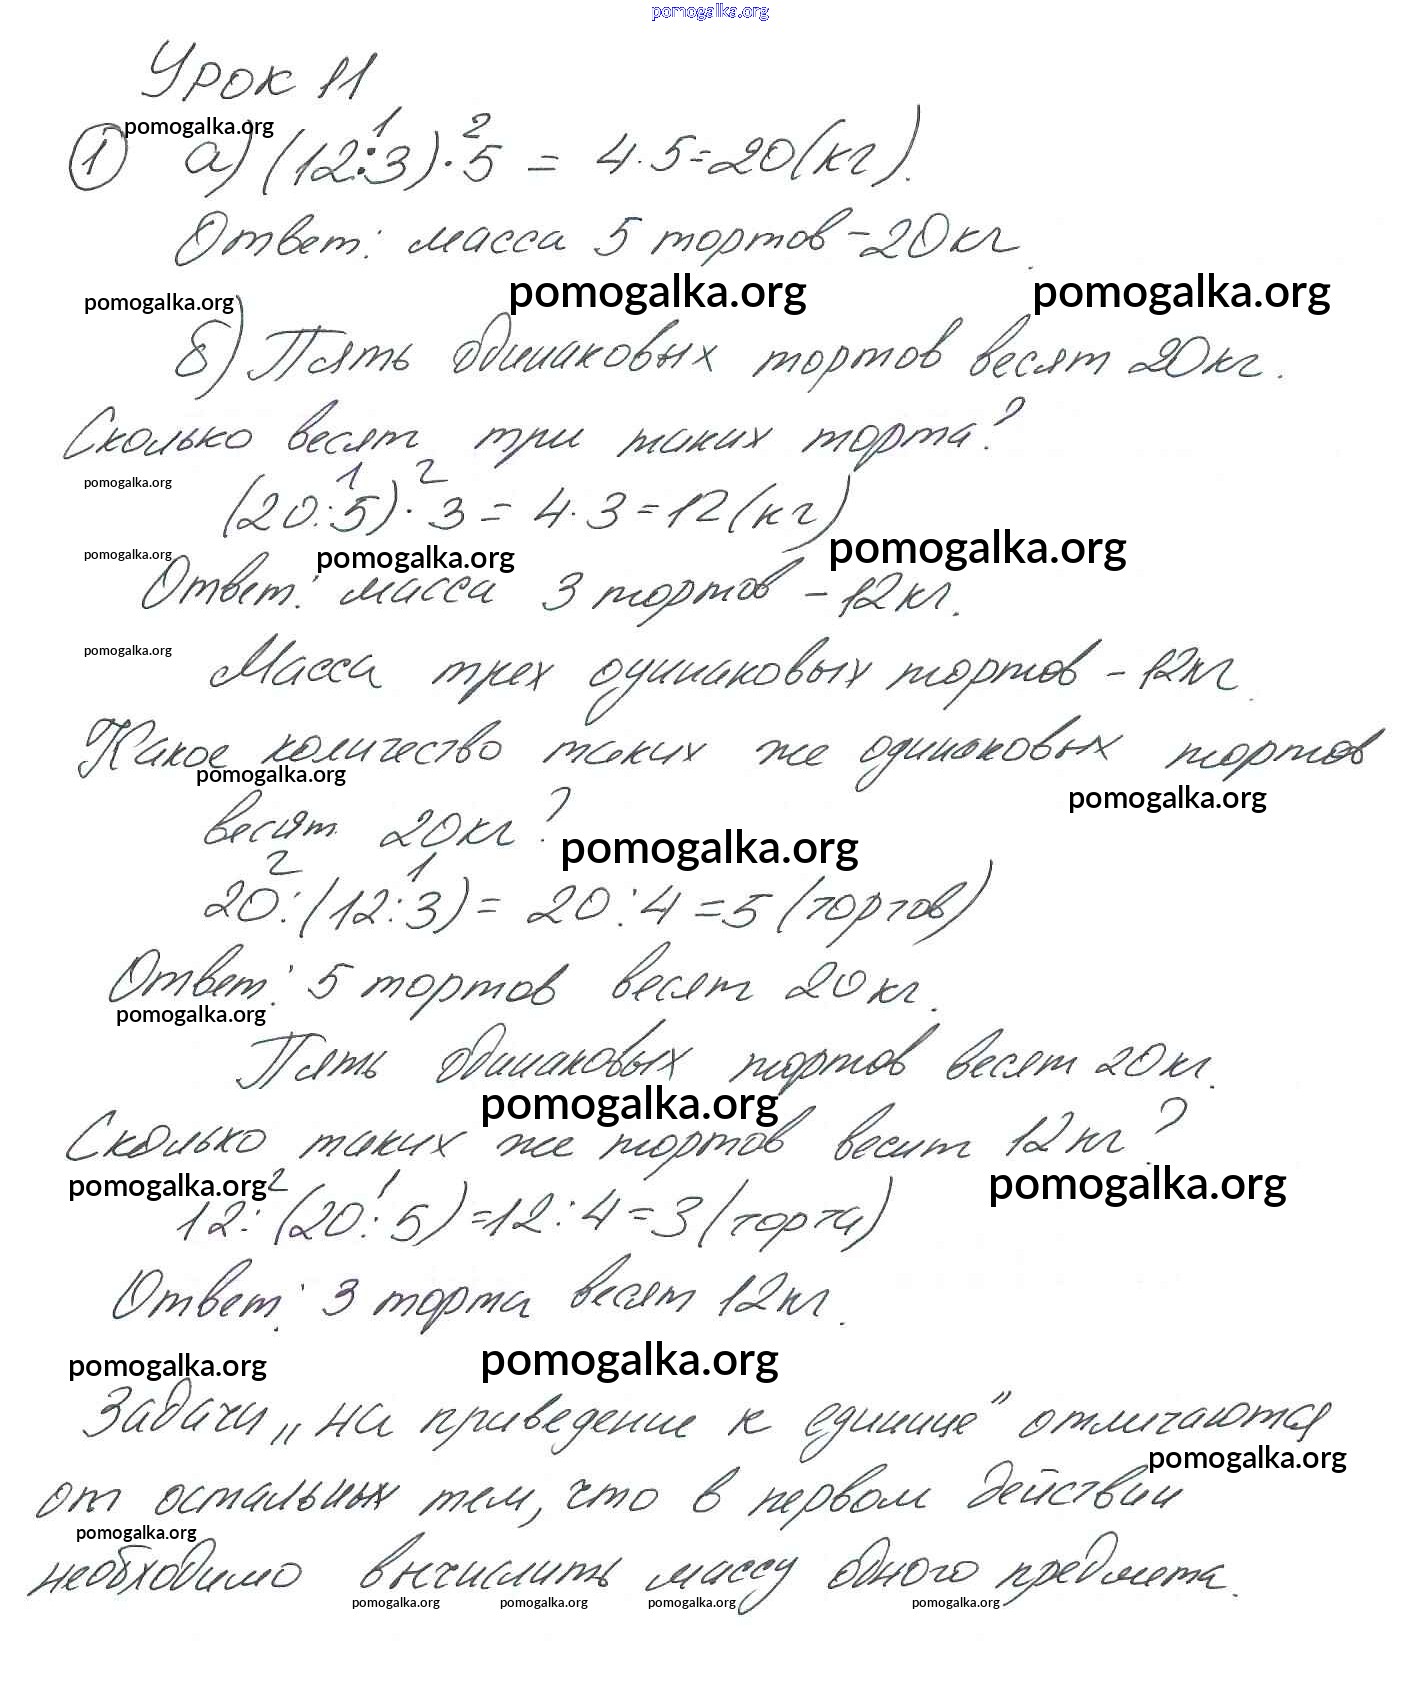 pomogalka.org
Урок 11
pomogalka.org
1 2
① а) (12:3)·5 = 4·5=20(кг).
Ответ: масса 5 тортов – 20кг.
pomogalka.org pomogalka.org pomogalka.org
б) Пять одинаковых тортов весят 20кг.
Сколько весят три таких торта?
pomogalka.org 1 2
(20:5)·3 = 4·3=12(кг)
pomogalka.org pomogalka.org pomogalka.org
Ответ: масса 3 тортов – 12кг.
pomogalka.org
Масса трех одинаковых тортов – 12кг.
Какое количество таких же одинаковых тортов
pomogalka.org pomogalka.org
весят 20кг?
pomogalka.org
2 1
20:(12:3)= 20:4=5(тортов)
Ответ: 5 тортов весят 20кг.
pomogalka.org
Пять одинаковых тортов весят 20кг.
pomogalka.org
Сколько таких же тортов весит 12кг?
pomogalka.org 2 1 pomogalka.org
12:(20:5)=12:4=3(торта)
Ответ: 3 торта весят 12кг.
pomogalka.org pomogalka.org
Задачи „на приведение к единице” отличаются
pomogalka.org
от остальных тем, что в первом действии
pomogalka.org
необходимо вычислить массу одного предмета.
pomogalka.org pomogalka.org pomogalka.org pomogalka.org